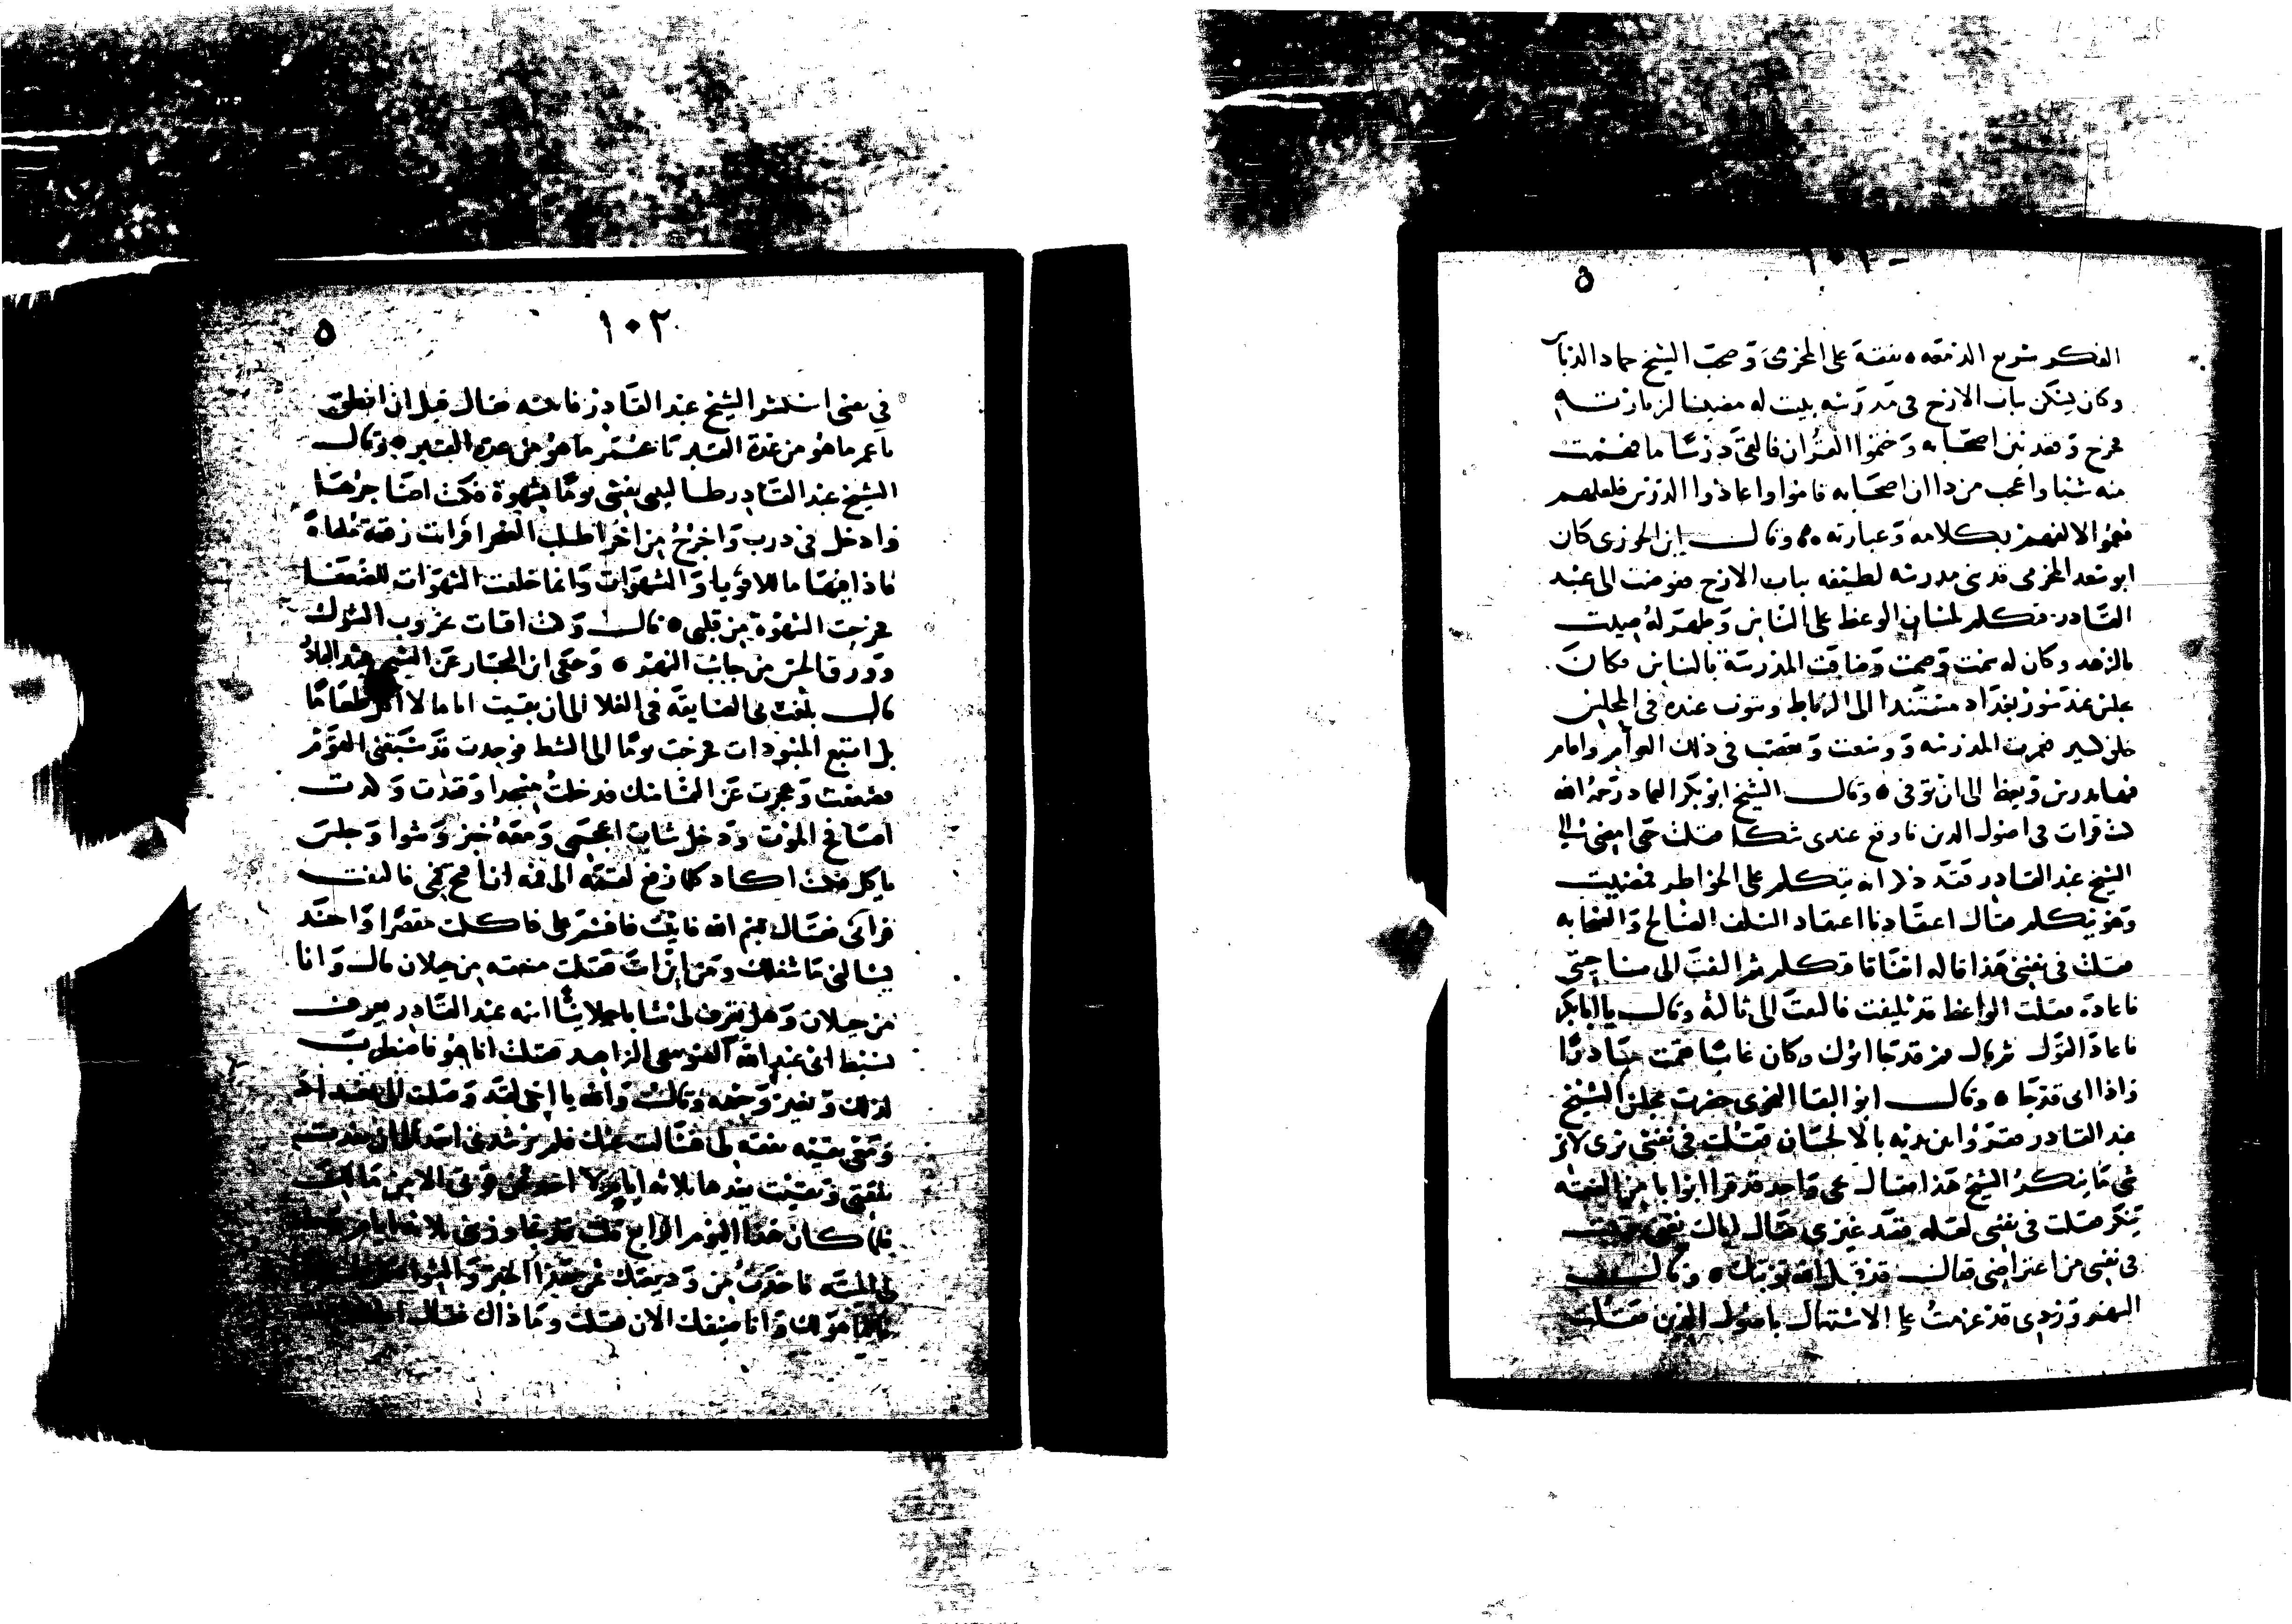 الفكر سريع الدمعه ٥ تفقه على المخرمى وصحب الشيخ حماد الدباس
وكان يسكن بباب الازج فى مدرسه بنيت له مضينا لزيارته
فخرج وقعد بين اصحابه وختموا القران فالقى درسا ما فهمت
منه شيا واعجب من ذا ان اصحابه قاموا واعادوا الدرس فلعلهم
فهموا لالفهم بكلامه وعبارته ٥ وقال ابن الجوزى كان
ابو سعد المخرمى قد بنى مدرسه لطيفه بباب الازج ففوضت الى عبد
القادر فتكلم بلسان الوعظ على الناس وظهر له صيت
بالزهد وكان له سمت وصمت وضاقت المدرسة بالناس فكان
يجلس عند سور بغداد مستندا الى الرباط ويتوب عنده فى المجلس
خلق كثير فعمرت المدرسه ووسعت وتعصب فى ذلك العوام واقام
فيها يدرس ويعظ الى ان توفى ٥ وقال الشيخ ابو بكر العماد رحمه الله
كنت قرات فى اصول الدين فاوقع عندى شكا فقلت حتى امضى الى
الشيخ عبد القادر فقد ذكر انه يتكلم على الخواطر فمضيت
وهو يتكلم فقال اعتقادنا اعتقاد السلف الصالح والصحابه
فقلت فى نفسى هذا قاله اتفاقا فتكلم ثم التفت الى ناحيتى
فاعاده فقلت الواعظ قد يلتفت فالتفت الى ثالثه وقال يا ابا بكر
فاعاد القول ثم قال قم قد جا ابوك وكان غايبا فقمت مبادرا
واذا ابى قد جا ٥ وقال ابو البقا النحوى حضرت مجلس الشيخ
عبد القادر فقروا بين يديه بالالحان فقلت فى نفسى ترى لاى
شى ما ينكر الشيخ هذا فقال يجى واحد قد قرا ابوابا من الفقه
ينكر فقلت فى نفسى لعله قصد غيرى فقال اياك نعنى فتبت
فى نفسى من اعتراضى فقال قد قبل الله توبتك ٥ وقال
السهروردى قد عزمت على الاشتغال باصول الدين فقلت
١٠٢
٥
فى نفسى استشير الشيخ عبد القادر فاتيته فقال قبل ان انطق
ياعمر ما هو من عدة القبر يا عمر ما هو من عدة القبر ٥ وقال
الشيخ عبد القادر طالبتنى نفسى يوما بشهوة فكنت اضاجرها
وادخل فى درب واخرج من اخر اطلب الصحرا فرايت رقعة ملقاة
فاذا فيها ما للاقويا والشهوات وانما خلقت الشهوات للضعفا
فخرجت الشهوة من قلبى ٥ قال وكنت اقتات بخروب الشوك
وورق الخس من جانب النهر ٥ وحكى ابن النجار عن الشيخ عبد القادر
قال بلغت بى الضايقة فى الغلا الى ان بقيت اياما لا اكل طعاما
بل اتبع المنبوذات فخرجت يوما الى الشط فوجدت قد سبقنى الفقرا
فضعفت وعجزت عن التماسك فدخلت مسجدا وقعدت وكدت
اصافح الموت ودخل شاب اعجمى ومعه خبز وشوا وجلس
ياكل فكنت اكاد كلما رفع لقمته الى فمه ان افتح فمى فالتفت
فرآنى فقال بسم الله فابيت فاقسم على فاكلت مقصرا واخذ
يسالنى ما شغلك ومن اين انت فقلت متفقه من جيلان قال وانا
من جيلان وهل تعرف لى شابا جيلانيا اسمه عبد القادر يعرف
بسبط ابى عبد الله الصومعى الزاهد فقلت انا هو فاضطرب
لذلك وتغير وجهه وقال والله يا اخى لقد وصلت الى بغداد
ومعى بقية نفقه لى فسالت عنك فلم يرشدنى احد الى ان نفدت
نفقتى وبقيت بعدها ثلاثه ايام لا اجد ثمن قوتى الا من مالك
فلما كان هذا اليوم الرابع قلت قد تجاوزتنى ثلاثه ايام
لى الميته فاخذت من وديعتك ثمن هذا الخبز والشوا
وانا ضيفك الان فقلت وما ذاك فقال